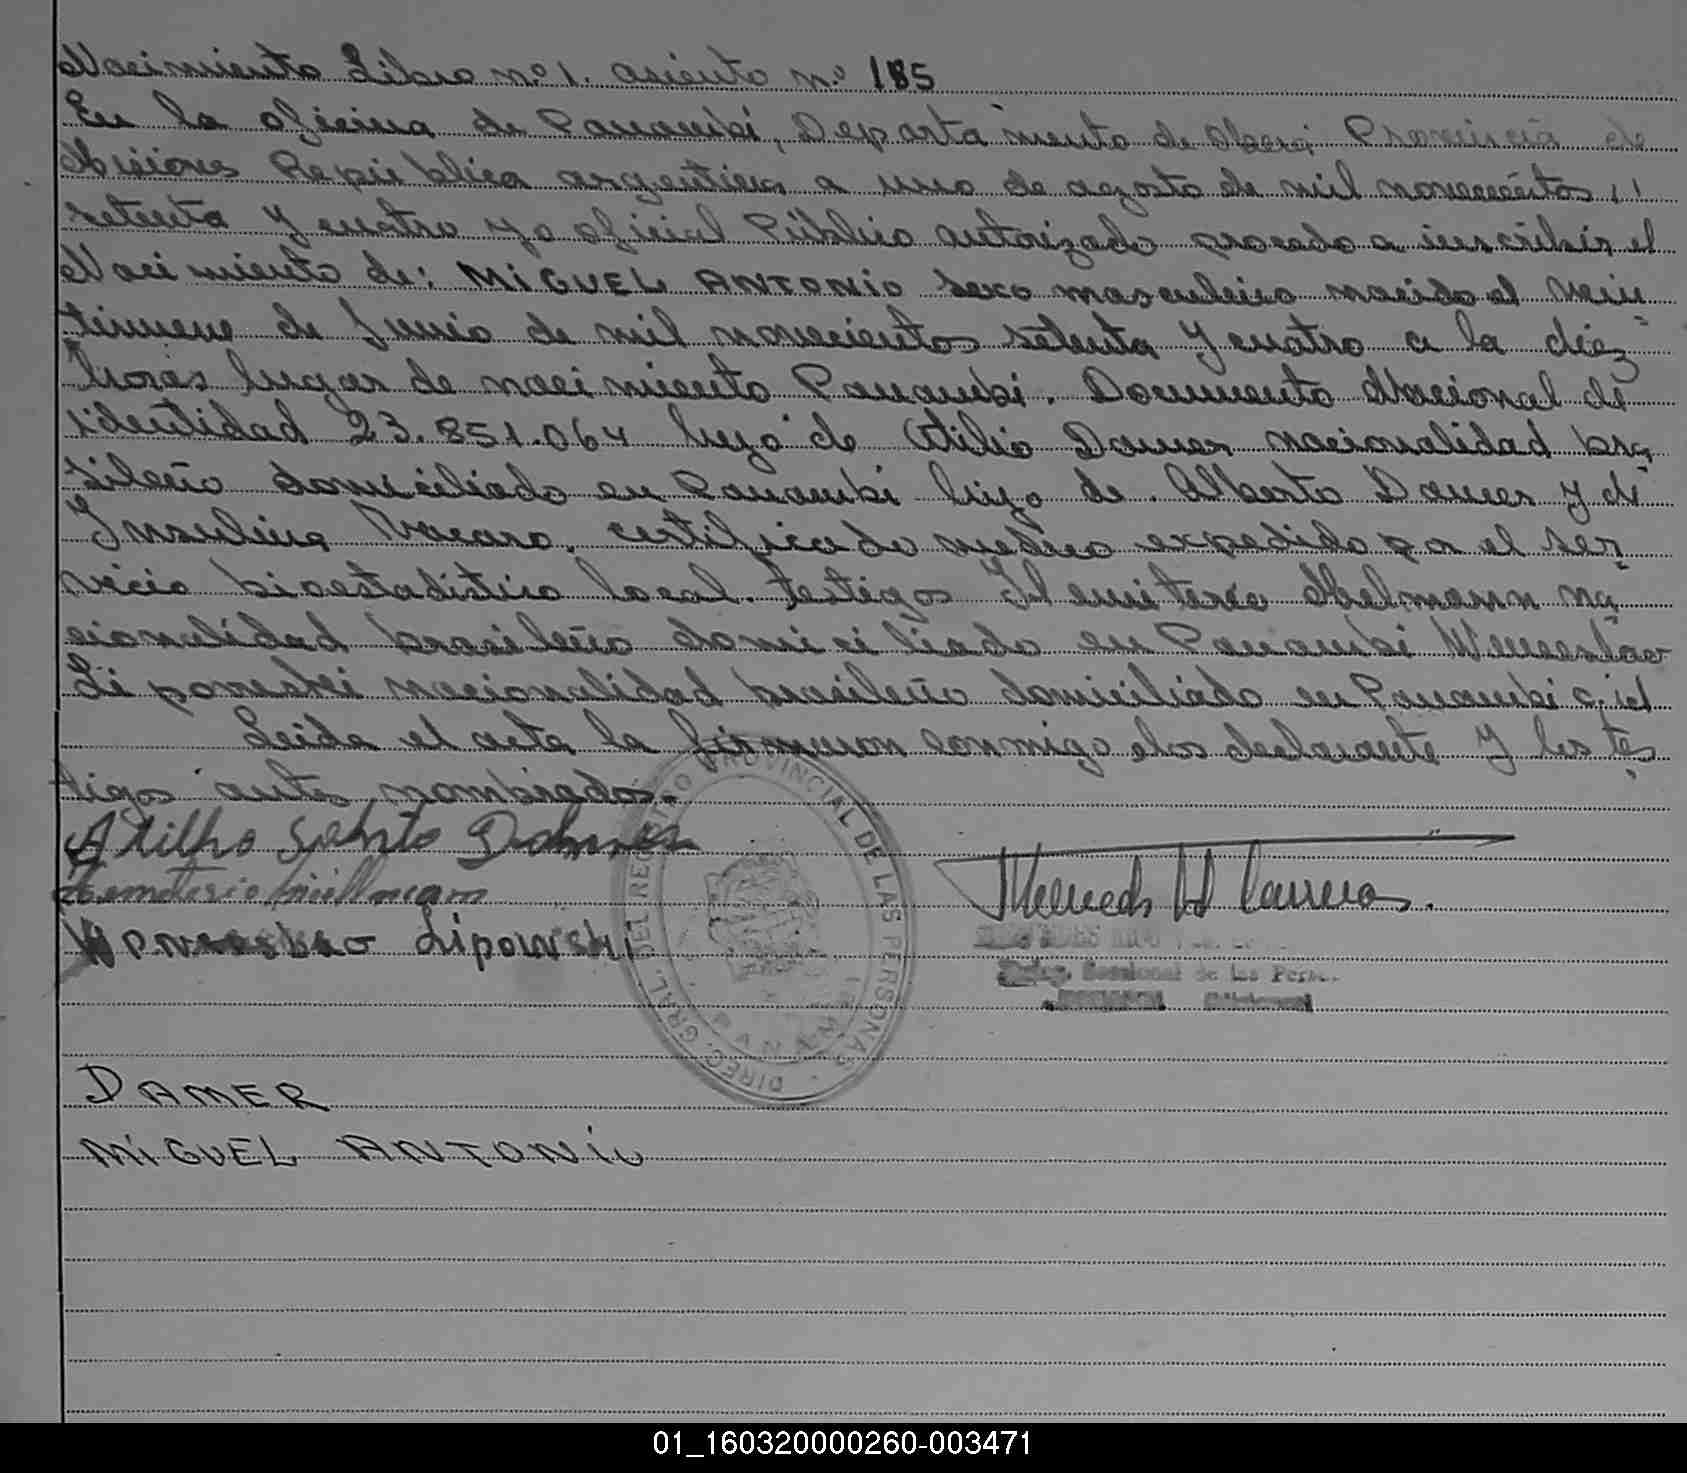 Nacimiento Libro n.º 1. asiento n.º 185
En la oficina de Panambi, Departamento de Oberá Provincia de
Misiones Republica argentina a uno de agosto de mil novecientos //
setenta y cuatro yo oficial Público autorizado procedo a inscribir, el
Nacimiento de: MIGUEL ANTONIO sexo masculino nacido el vein
tinueve de Junio de mil novecientos setenta y cuatro a la diez
horas lugar de nacimiento Panambi. Documento Nacional de
identidad 23.851.064 hijo de Atilio Damer nacionalidad bra
sileño domiciliado en Panambi hijo de Alberto Damer y de
certificado medico expedido por el ser
vicio bioestadistico local. testigos na
cionalidad brasileño domiciliado en Panambi Wenceslao
Li povski nacionalidad brasileño domiciliado en Panambi
Leida el acta la firmaron conmigo el declarante y los tes
tigos antes nombrados.
Atilho Damer
Lipowski
DIREC. GRAL. DEL REGISTRO PROVINCIAL DE LAS PERSONAS
PANAMBI
Seccional de las
DAMER
MIGUEL ANTONIO
01_160320000260-003471